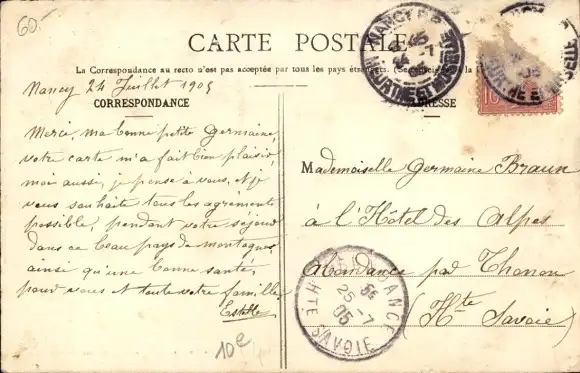 60.-
CARTE POSTALE
La Correspondance au recto n'est pas acceptée par tous les pays étrangers. (Se renseigner à la
Nancy 24 Juillet 1905
CORRESPONDANCE
ADRESSE
Merci, ma bonne petite Germaine,
votre carte m'a fait bien plaisir,
moi aussi, je pense à vous, et je
vous souhaite tous les agréments
possible, pendant votre séjour
dans ce beau pays de montagnes,
ainsi qu'une bonne santé,
pour vous et toute votre famille
Estelle
Mademoiselle Germaine Braun
à l'Hôtel des Alpes
Abondance par Thonon
(Hte Savoie)
NANCY
24 -7
05
MEURTHE ET MOSELLE
10
ABONDANCE
25 -7
05
HTE SAVOIE
10e